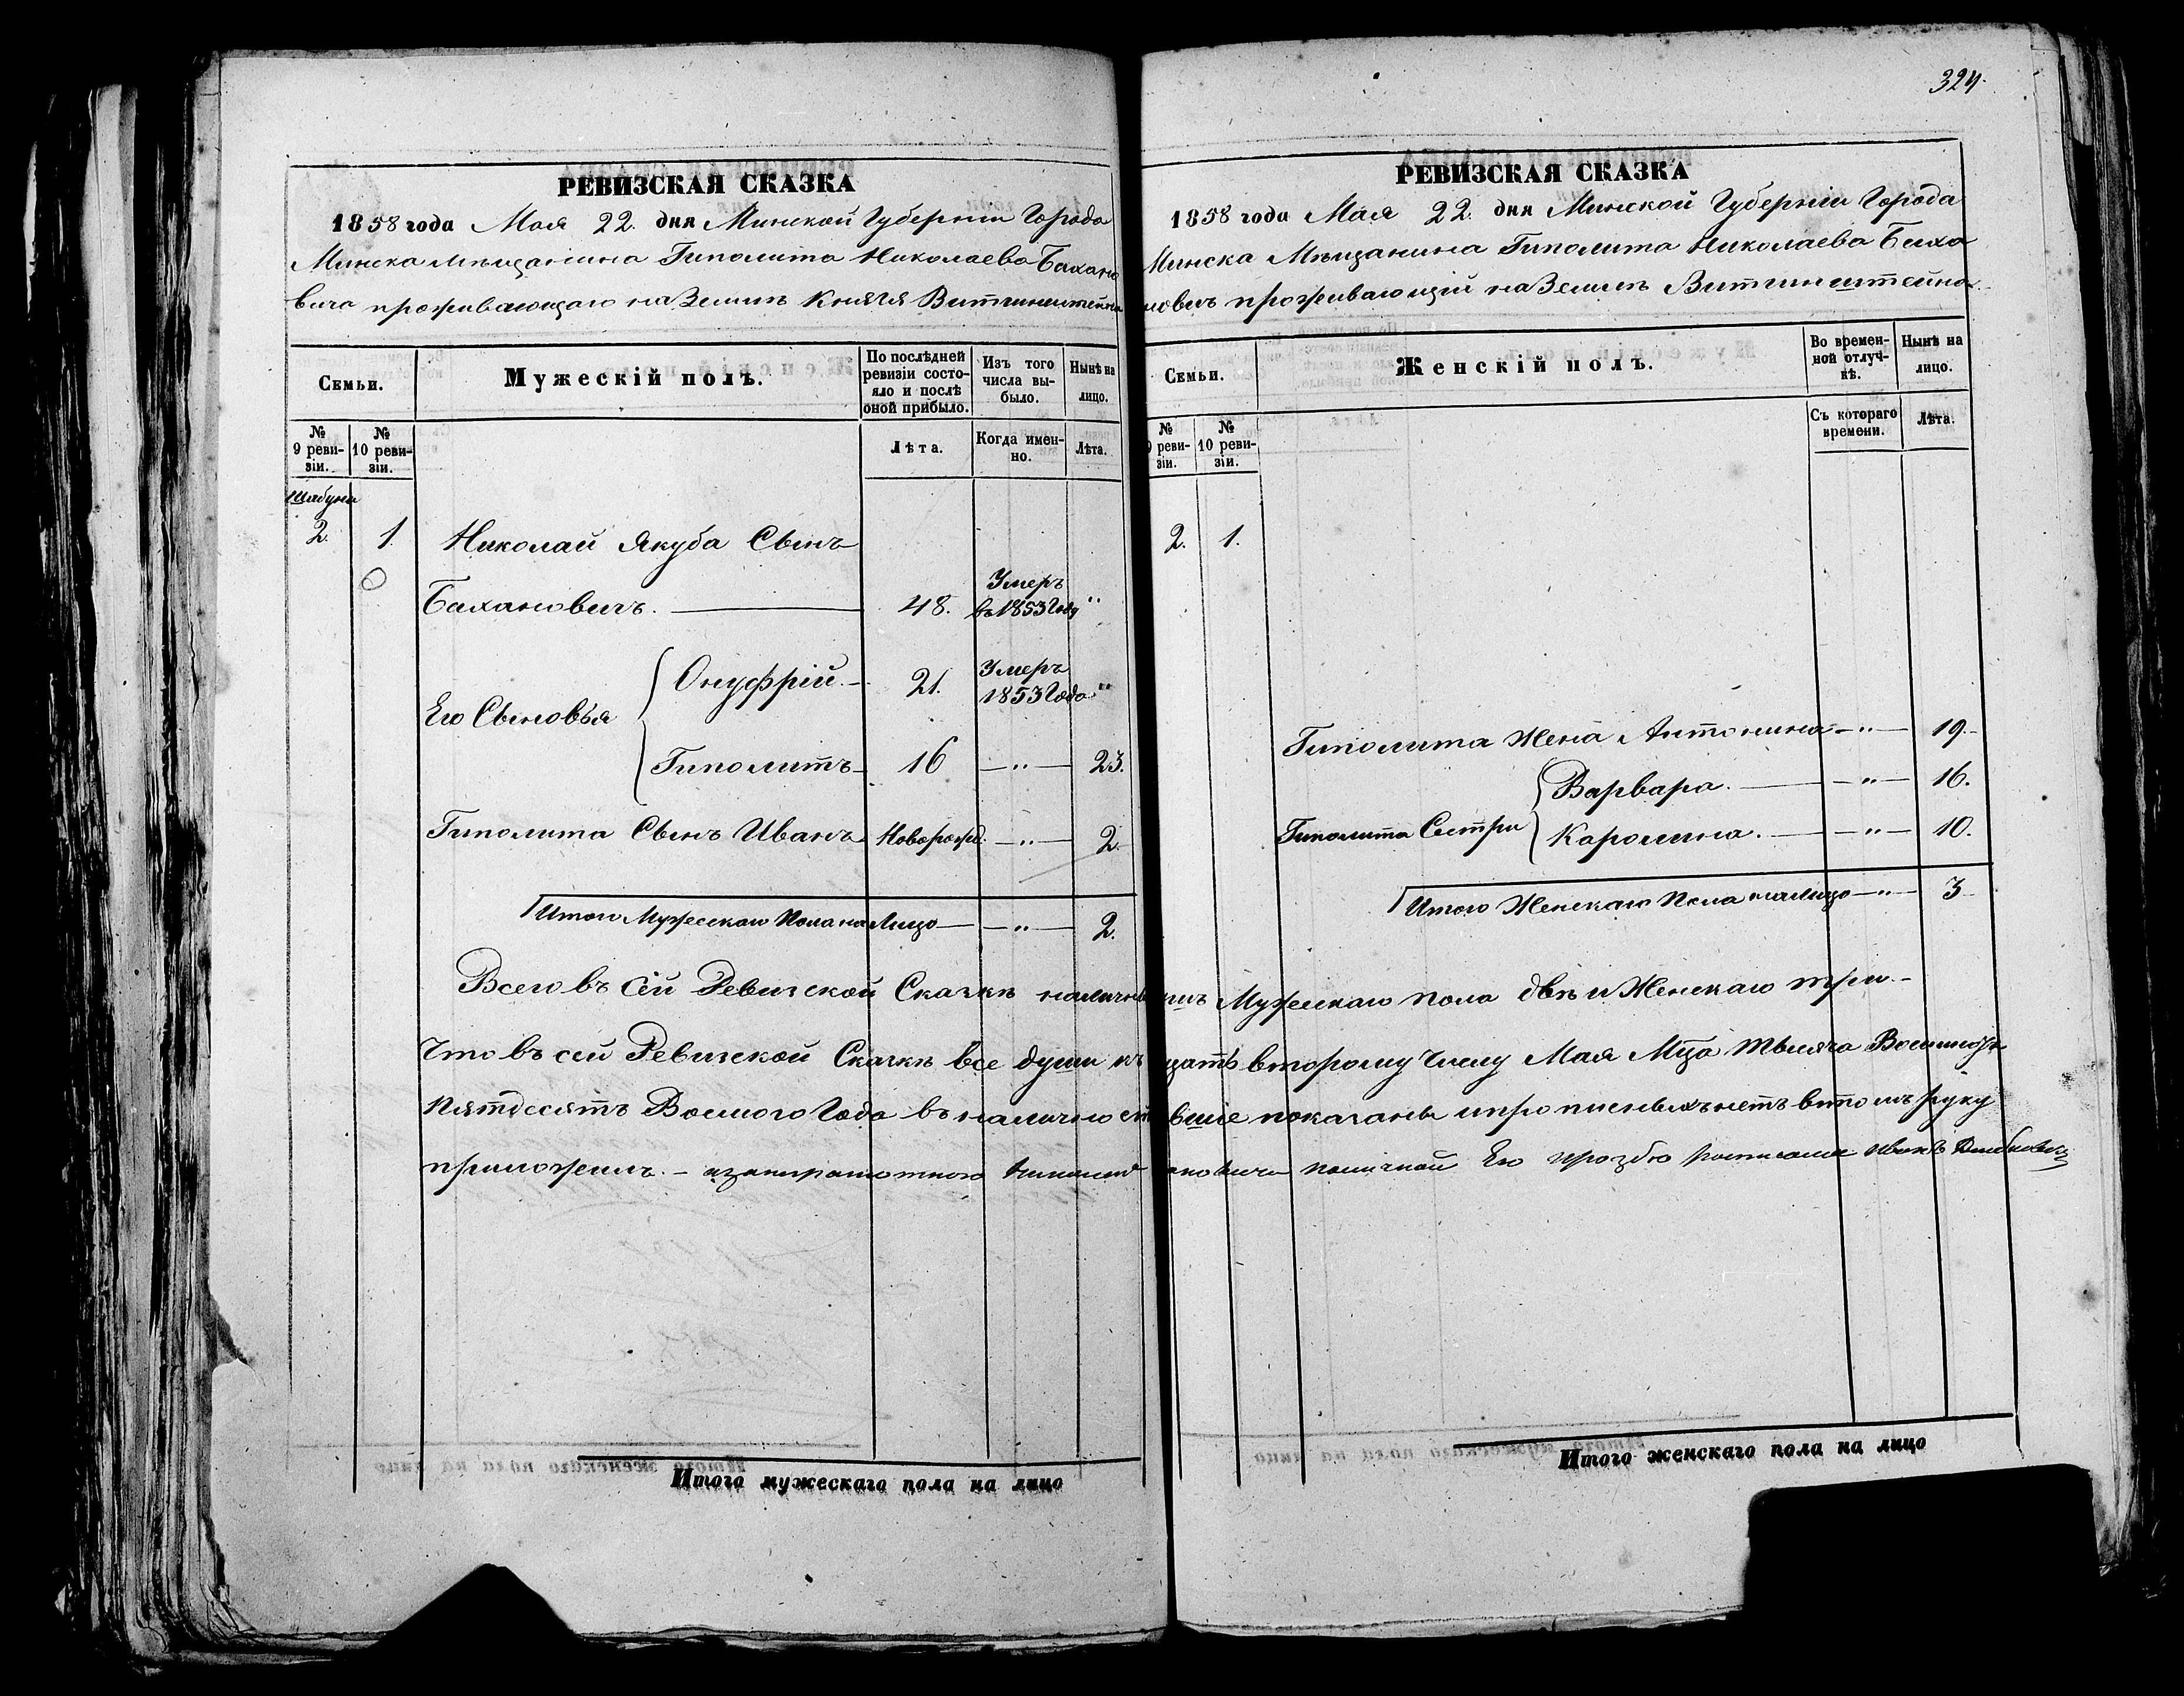 324.
РЕВИЗСКАЯ СКАЗКА
1858 года Мая 22. дня Минской Губерніи Города
Минска мѣщанина Гиполита Николаева Бахано
вича проживающаго на Землѣ Князя
Семьи.
Мужескій полъ.
По послѣдней ревизіи состо-
яло и послѣ
оной прибыло.
Изъ того
числа вы-
было.
Нынѣ на
лицо.
№
9 реви-
зіи.
№
10 реви-
зіи.
Лѣта.
Когда имен-
но.
Лѣта.
2. 1. Николай Якуба Сынъ
Бахановичъ. 48. Умеръ въ 1853 Году "
Его Сыновья
Онуфрій. 21. Умеръ 1853 Года "
Гиполитъ 16 — " — 23.
Гиполита Сынъ ИванъНоворожд. — " — 2.
Итого Мужескаго Пола на Лицо — " — 2.
РЕВИЗСКАЯ СКАЗКА
1858 года Мая 22. дня Минской Губерніи Города
Минска Мѣщанина Гиполита Николаева Баха
новичъ проживающій на Землѣ Витгинштейна
Семьи.
Женскій полъ.
Во времен-
ной отлуч-
кѣ.
Нынѣ на
лицо.
№
9 реви-
зіи.
№
10 реви-
зіи.
Съ котораго
времени.
Лѣта.
2. 1.
Гиполита Жена Антонина — " — 19.
Гиполита Сестри
Варвара. — " — 16.
Каролина. — " — 10.
Итого Женскаго Пола на Лицо — " — 3
Всего въ Сей Ревизской Сказкѣ Мужескаго пола двѣ и Женскаго три.
Что въ сей Ревизской Сказкѣ все души второму Числу Мая Мца Тысяча
Пятдесятъ Восмого Года въ показаны и прописныхъ нетъ в томъ руку
приложилъ. — Его прозбо
Итого мужескаго пола на лицо
Итого женскаго пола на лицо